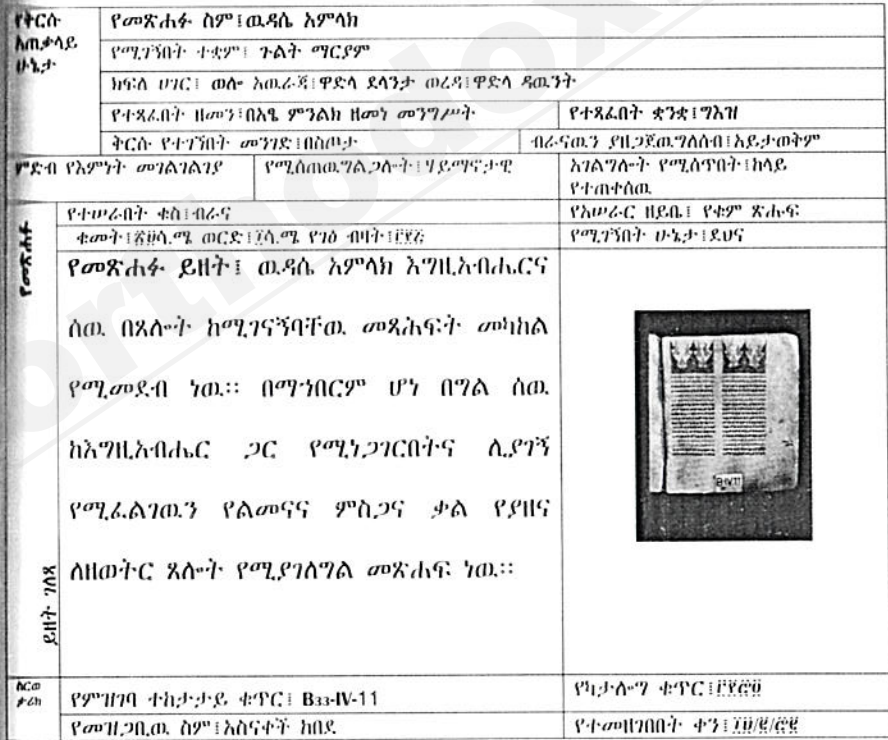 የቅርሱ አጠቃላይ ሁኔታ
የመጽሐፉ ስም፤ዉዳሴ አምላክ
የሚገኝበት ተቋም፤ ጉልት ማርያም
ክፍለ ሀገር፤ ወሎ አዉራጃ፤ዋድላ ደላንታ ወረዳ፤ዋድላ ዳዉንት
የተጻፈበት ዘመን፤በአፄ ምንልክ ዘመነ መንግሥት
የተጻፈበት ቋንቋ፤ግእዝ
ቅርሱ የተገኘበት መንገድ፤በስጦታ
ብራናዉን ያዘጋጀዉ ግለሰብ፤አይታወቅም
ምድብ የእምነት መገልገልገያ
የሚሰጠዉ ግልጋሎት፤ሃይማኖታዊ
አገልግሎት የሚሰጥበት፤ከላይ
የተጠቀሰዉ
የተሠራበት ቁስ፤ብራና
የአሠራር ዘይቤ፤ የቁም ጽሑፍ
ቁመት፤ ሳ.ሜ ወርድ፤ ሳ.ሜ የገፅ ብዛት፤
የሚገኝበት ሁኔታ፤ደህና
የመጽሐፉ
የመጽሐፉ ይዘት፤ ዉዳሴ አምላክ እግዚአብሔርና
ሰዉ በጸሎት ከሚገናኝባቸዉ መጻሕፍት መካከል
የሚመደብ ነዉ፡፡ በማኅበርም ሆነ በግል ሰዉ
ከእግዚአብሔር ጋር የሚነጋገርበትና ሊያገኝ
የሚፈልገዉን የልመናና ምስጋና ቃል የያዘና
ለዘወትር ጸሎት የሚያገለግል መጽሐፍ ነዉ፡፡
ይዘት ገለጻ
የምዝገባ ተከታታይ ቁጥር፤ B33-IV-11
የካታሎግ ቁጥር፤
የመዝጋቢዉ ስም፤አስናቀች ከበደ
የተመዘገበበት ቀን፤
orthodox